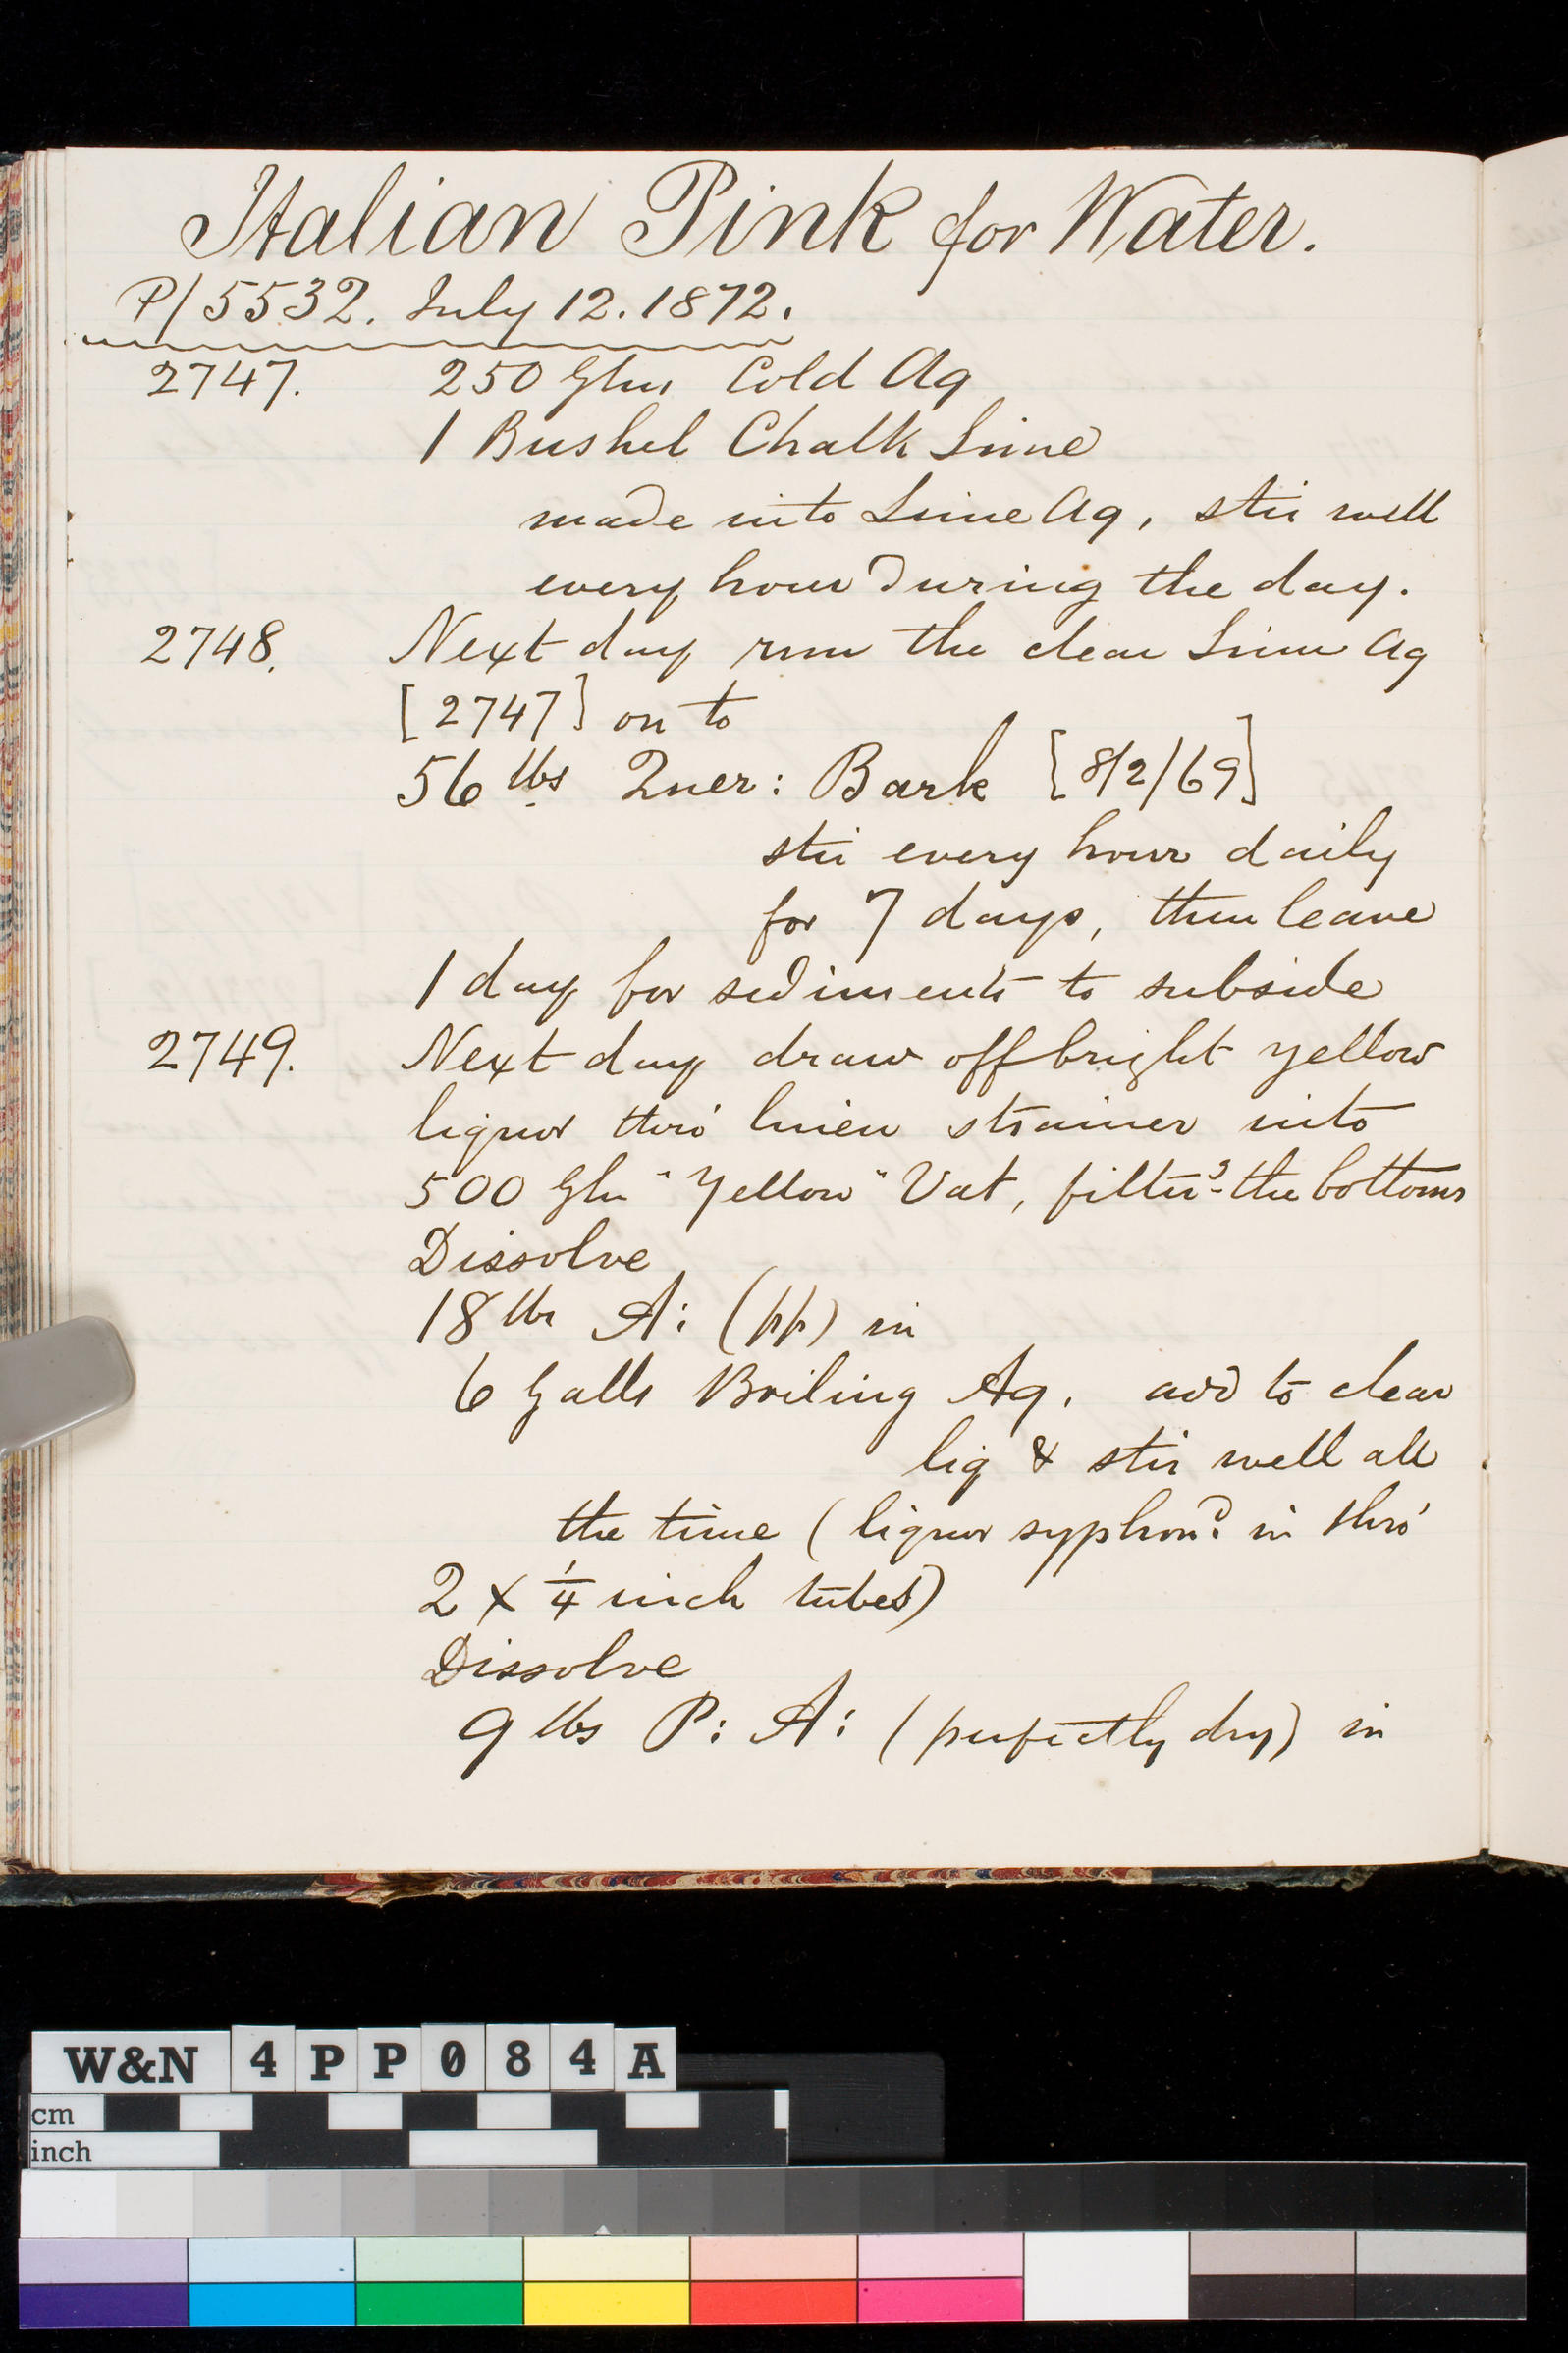 Italian Pink for Water.
P/5532. July 12. 1872.
2747. 250 Glns Cold Aq
1 Bushel Chalk Lime
made into Lime Aq, stir well
every hour during the day.
2748. Next day run the clear Lime Aq
[2747] on to
56 lbs Quer: Bark [8/2/69]
stir every hour daily
for 7 days, then leave
1 day for sediments to subside
2749. Next day draw off bright yellow
liquor thro' linen strainer into
500 Gln "Yellow" Vat, filterg the bottoms
Dissolve
18 lbs A: (pp) in
6 Galls Boiling Aq. add to clear
liq & stir well all
the time (liquor syphond in thro'
2 x 1/4 inch tubes)
Dissolve
9 lbs P: A: (perfectly dry) in
W&N 4PP084A
cm
inch